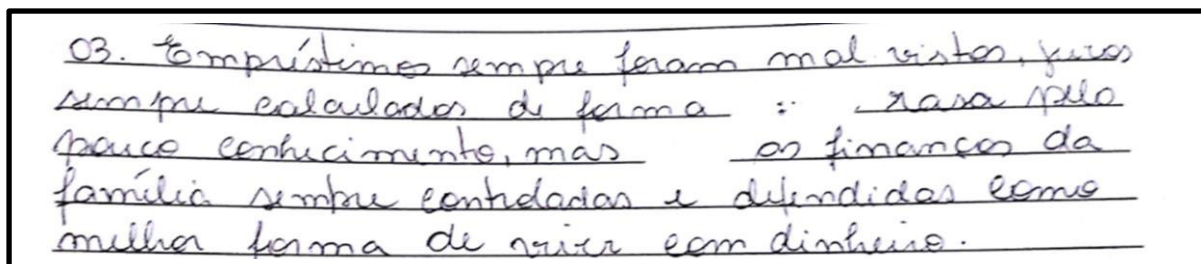 03. Empréstimos sempre foram mal vistos, juros
sempre calculados de forma : rasa pelo
pouco conhecimento, mas as finanças da
família sempre controladas e defendidas como
melhor forma de viver com dinheiro.